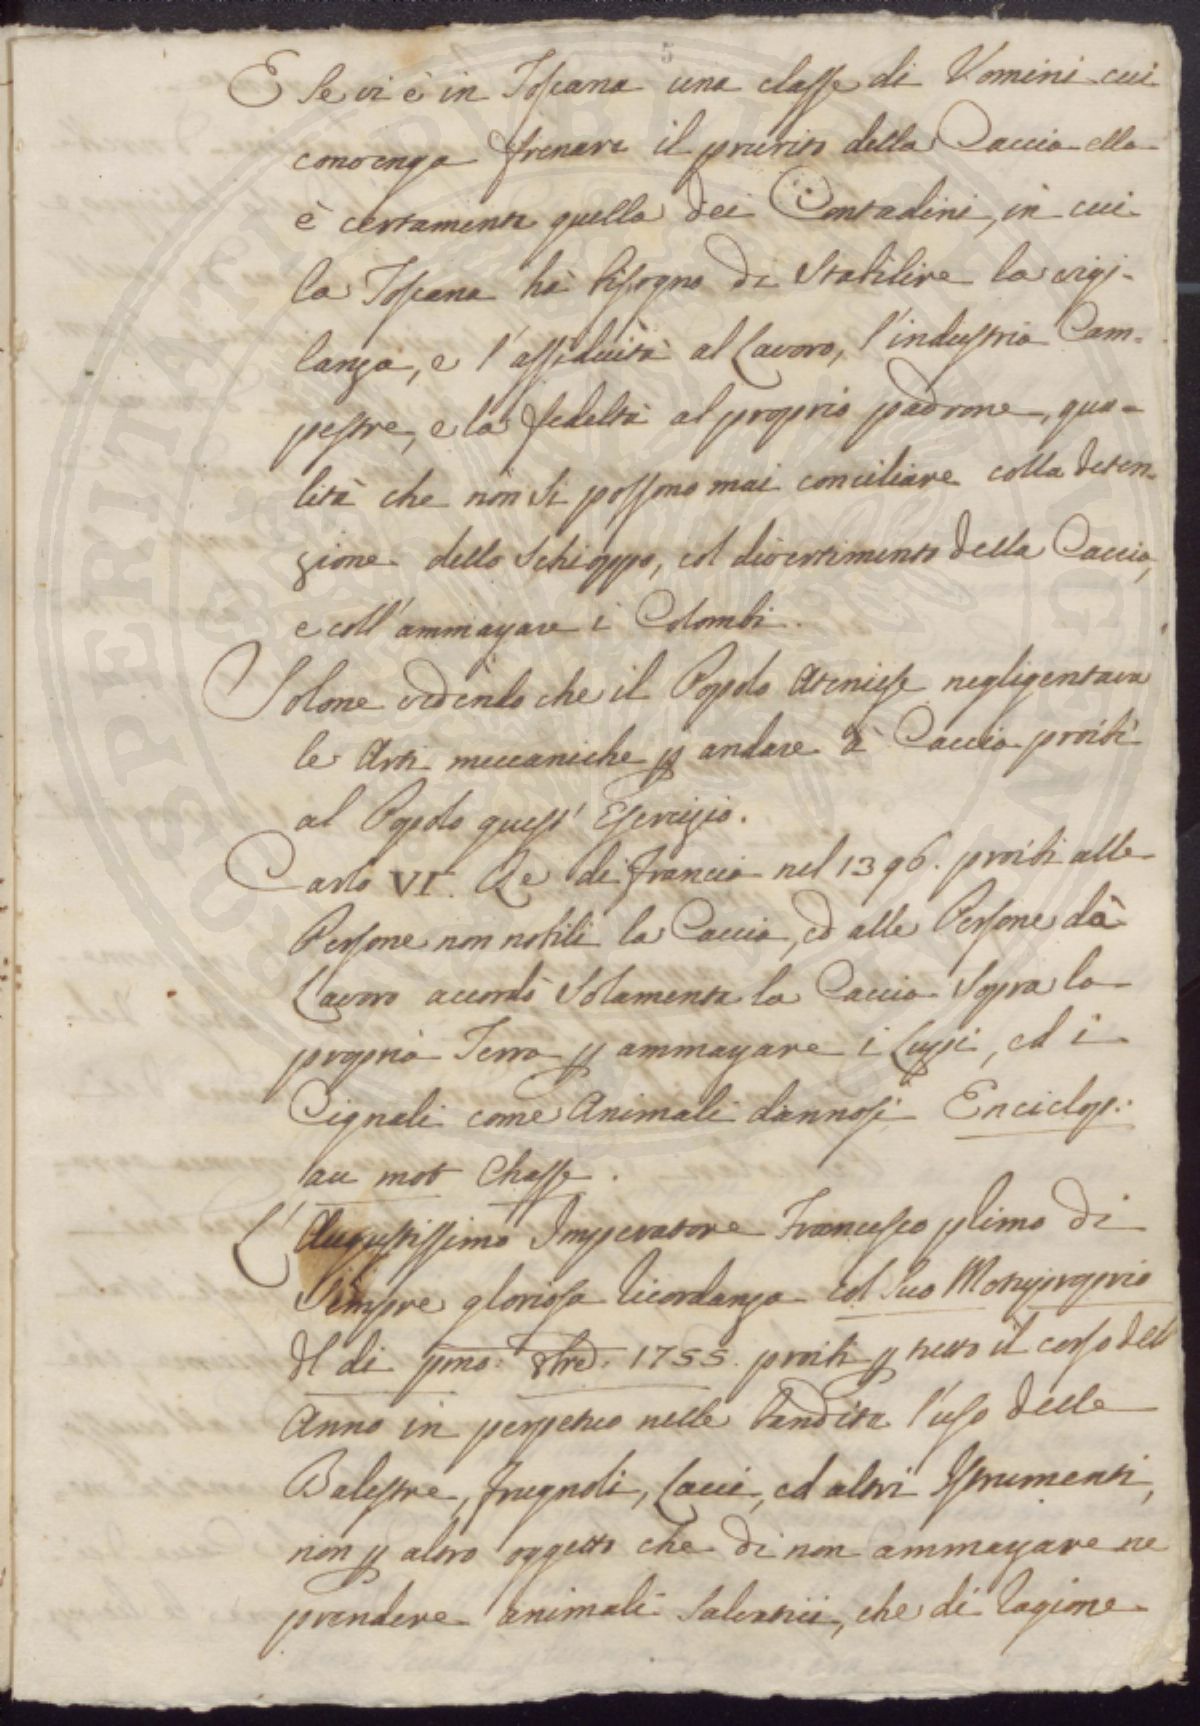 5
E se vi è in Toscana una classe di Uomini cui
convenga frenare il prurito della Caccia ella
è certamente quella dei Contadini, in cui
la Toscana hà bisogno di stabilire la vigi-
lanza, e l'assiduità al Lavoro, l'industria Cam-
pestre, e la fedeltà al proprio padrone, qua-
lità che non si possono mai conciliare colla deten-
zione dello Schioppo, col divertimento della Caccia,
e coll'ammazzare i Colombi.
Solone vedendo che il Popolo Ateniese negligentava
le Arti meccaniche p andare à Caccia proibì
al Popolo quest'Esercizio.
Carlo VI. Re di Francia nel 1396. proibì alle
Persone non nobili la Caccia, ed alle Persone dà
Lavoro accordò solamente la Caccia sopra la
propria Terra p ammazzare i Lupi, ed i
Cignali come Animali dannosi Enciclop:
au mot Chasse.
L'Augustissimo Imperatore Francesco primo di
sempre gloriosa ricordanza col suo Motuproprio
del di pmo: 8bre. 1755. proibì p tutto il corso dell
Anno in perpetuo nelle bandite l'uso delle
Balestre, frugnoli, Lacci, ed altri Istrumenti,
non p altro oggetto che di non ammazzare ne
prendere animali salvatici, che di ragione